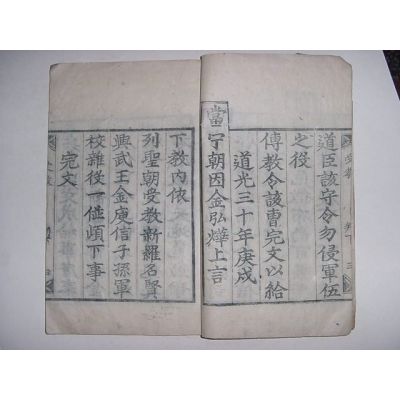 道臣該守令勿侵軍伍
之役
傳教令該曹完文以給
道光三十年庚戌
當宁朝因金弘燁上言
下教內依
列聖朝受教新羅名賢
興武王金庾信子孫軍
校雜役一竝頉下事
完文